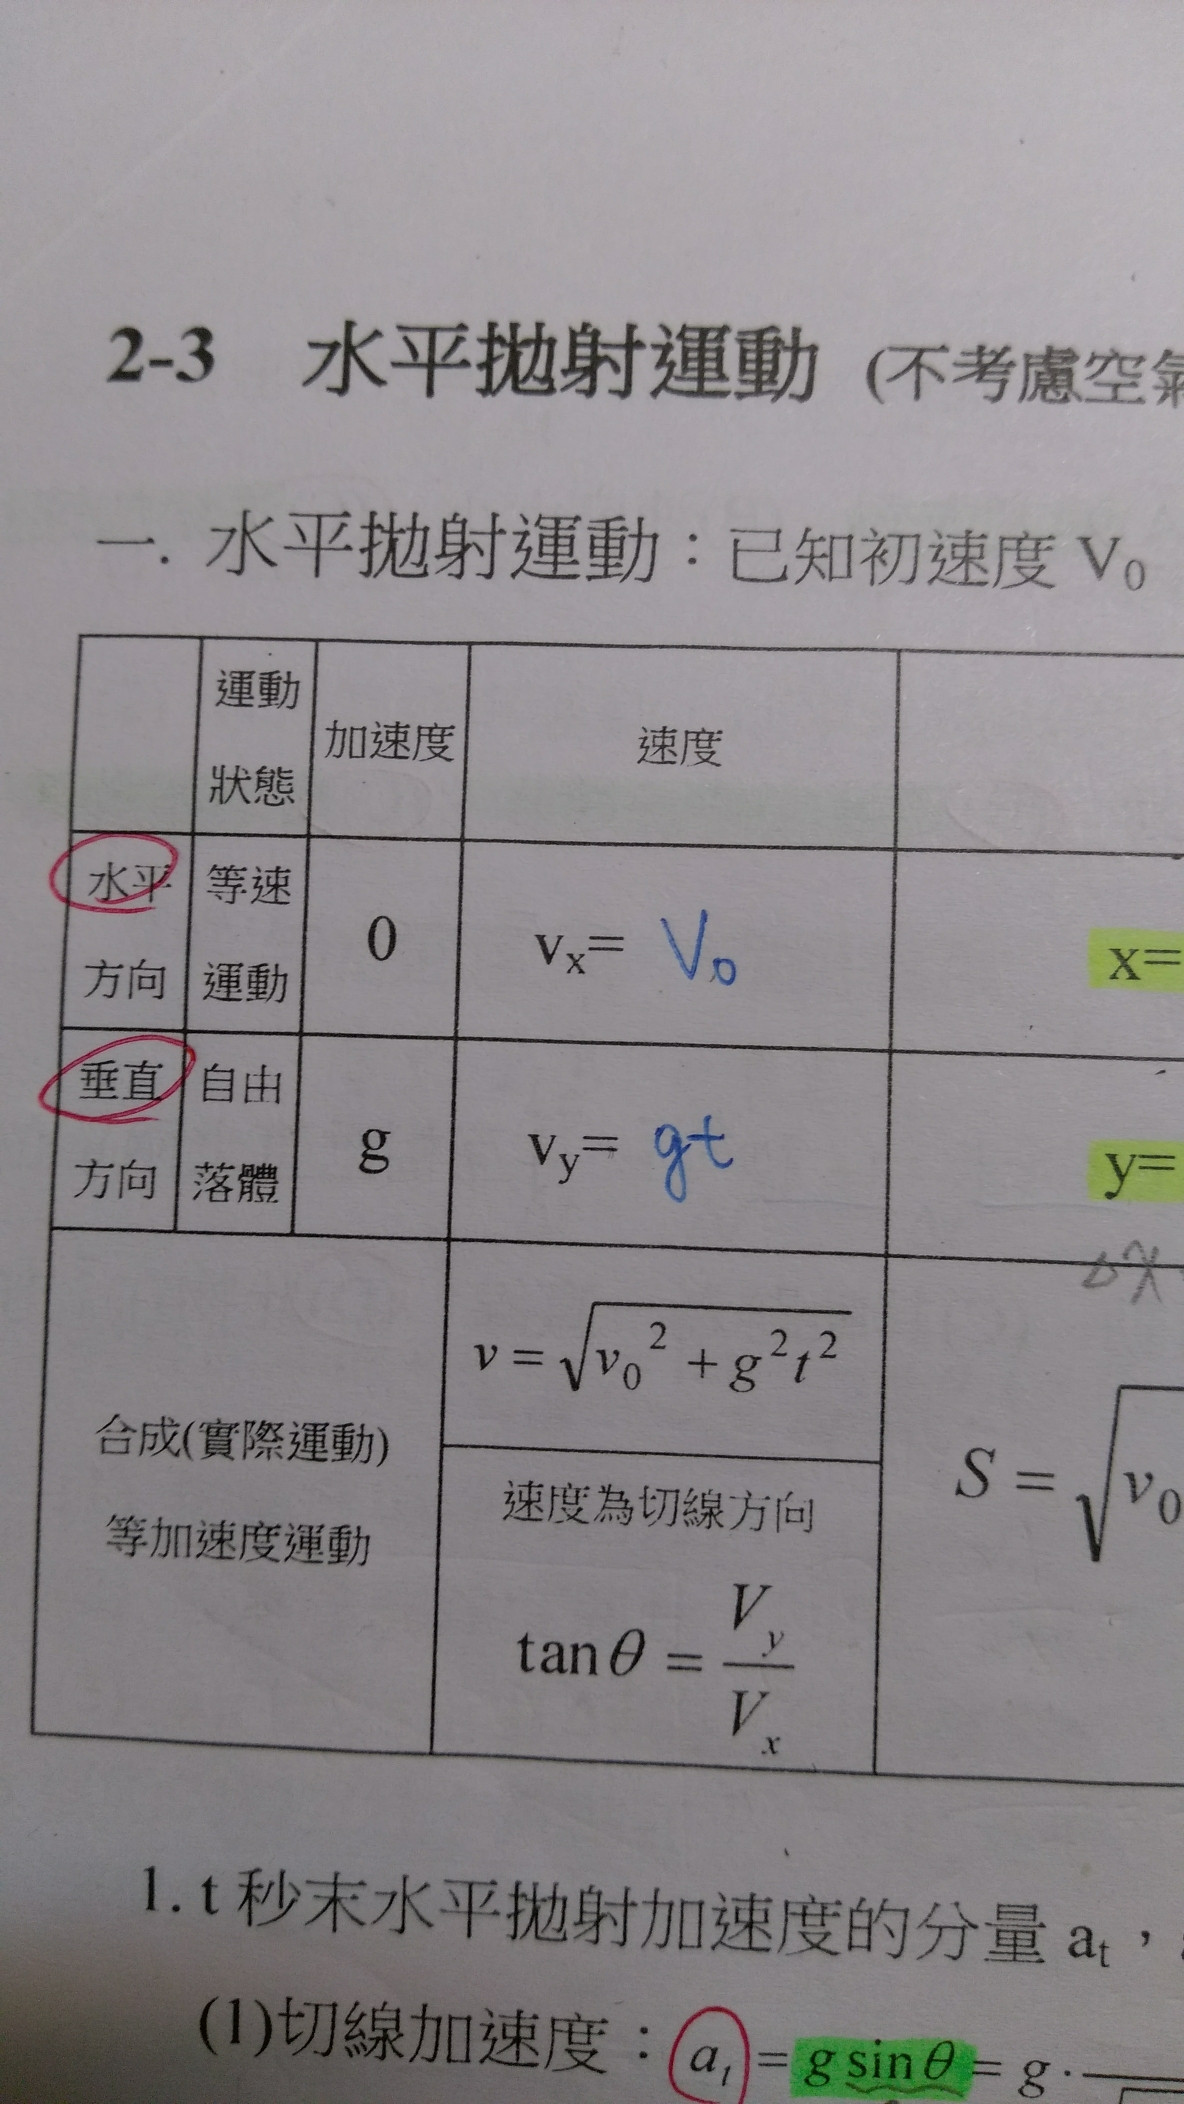 2-3 水平拋射運動 (不考慮空氣
一. 水平拋射運動：已知初速度 V₀
運動
狀態
加速度
速度
水平
方向
等速
運動
0
vₓ= V₀
x=
垂直
方向
自由
落體
g
v_y= gt
y=
Δx
合成(實際運動)
等加速度運動
v = √(v₀² + g²t²)
速度為切線方向
tanθ = V_y / V_x
S = √v₀
1. t 秒末水平拋射加速度的分量 aₜ，
(1)切線加速度：aₜ = g sinθ = g ·